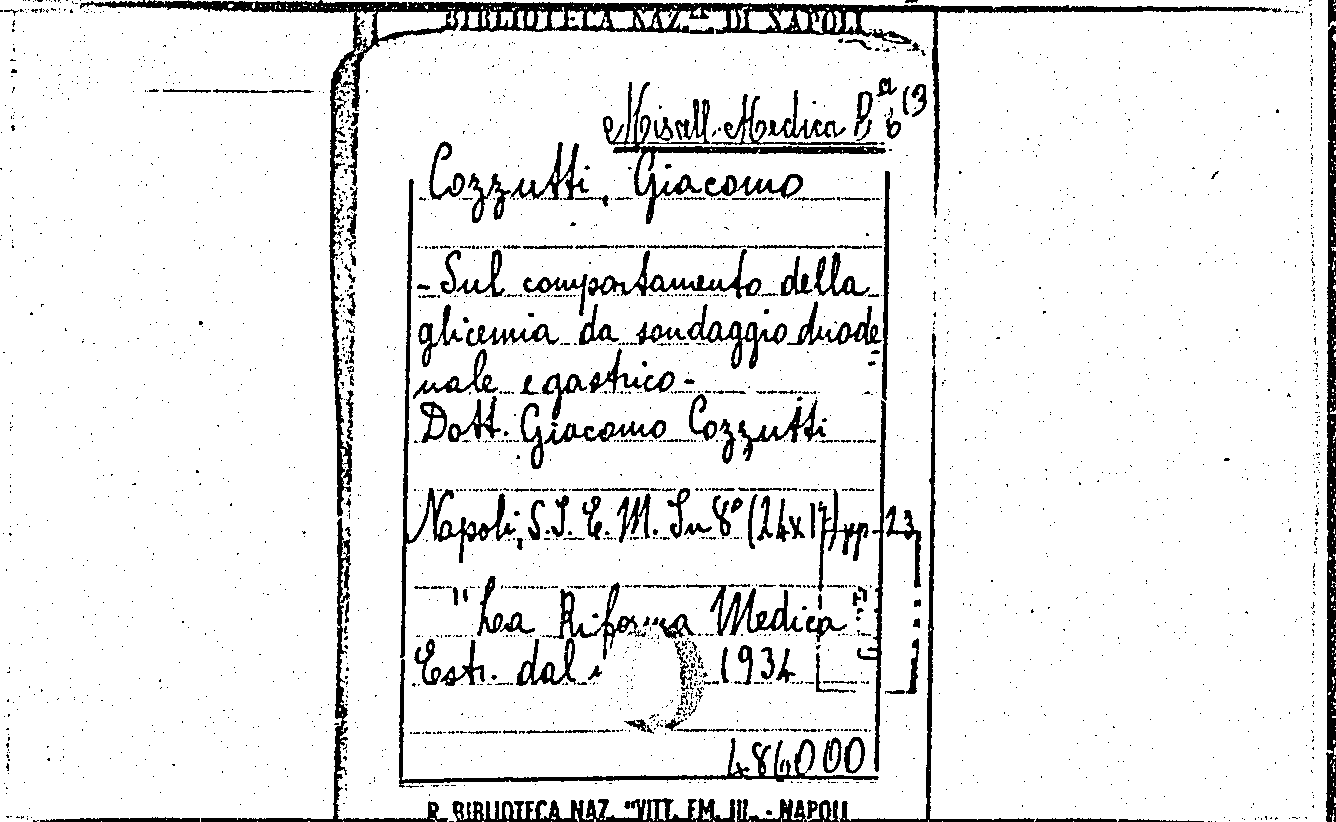 BIBLIOTECA NAZ.le DI NAPOLI
Miscll. Medica Ba 6(3
Cozzutti, Giacomo
- Sul comportamento della
glicemia da sondaggio duode
=
nale e gastrico -
Dott. Giacomo Cozzutti
Napoli, S.I.E.M. In 8° (24x17) pp. 23
"La Riforma Medica"
Estr. dal 1934
486000
R. BIBLIOTECA NAZ. "VITT. EM. III. - NAPOLI